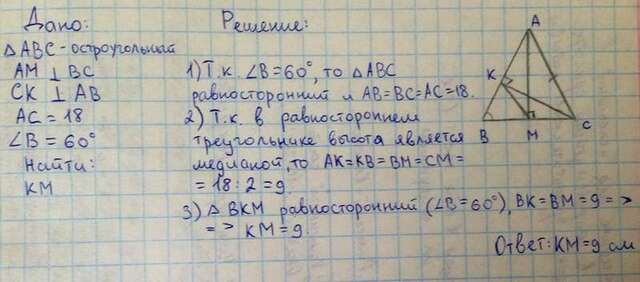 Дано:
△ABC - остроугольный
AM ⊥ BC
CK ⊥ AB
AC = 18
∠B = 60°
Найти:
KM
Решение:
1) Т.к. ∠B = 60°, то △ABC
равносторонний и AB=BC=AC=18.
2) Т.к. в равностороннем
треугольнике высота является
медианой, то AK=KB=BM=CM=
= 18:2=9.
3) △ BKM равносторонний (∠B=60°), BK=BM=9 =>
=> KM=9.
Ответ: KM=9 см
A
K
B
M
C